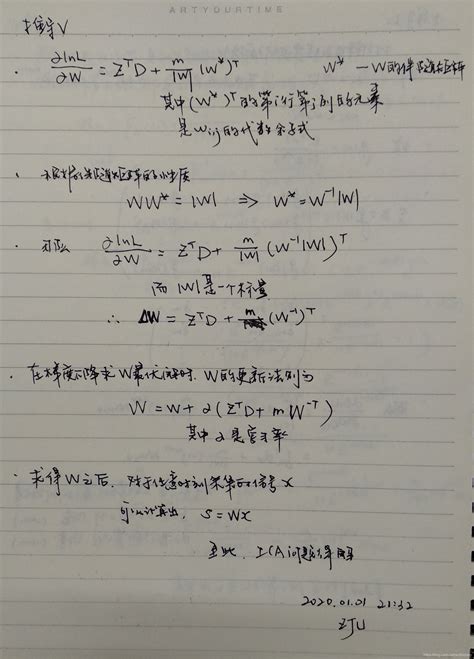 ARTYOURTIME
推导 V
· ∂lnL/∂W = ZᵀD + m/|W| (W*)ᵀ W* — W的伴随矩阵
其中(W*)ᵀ的第i行第j列的元素
是wij的代数余子式
· 根据伴随矩阵的性质
WW* = |W| ⇒ W* = W⁻¹|W|
· 可以 ∂lnL/∂W = ZᵀD + m/|W| (W⁻¹|W|)ᵀ
而 |W| 是一个标量
∴ ΔW = ZᵀD + m(W⁻¹)ᵀ
· 在梯度下降求W最优解时, W的更新法则为
W = W + α(ZᵀD + mW⁻ᵀ)
其中 α是学习率
· 求得W之后, 对于任意时刻采集的信号 x
可以计算出, s = Wx
至此, ICA问题得解
2020.01.01 21:32
ZJU